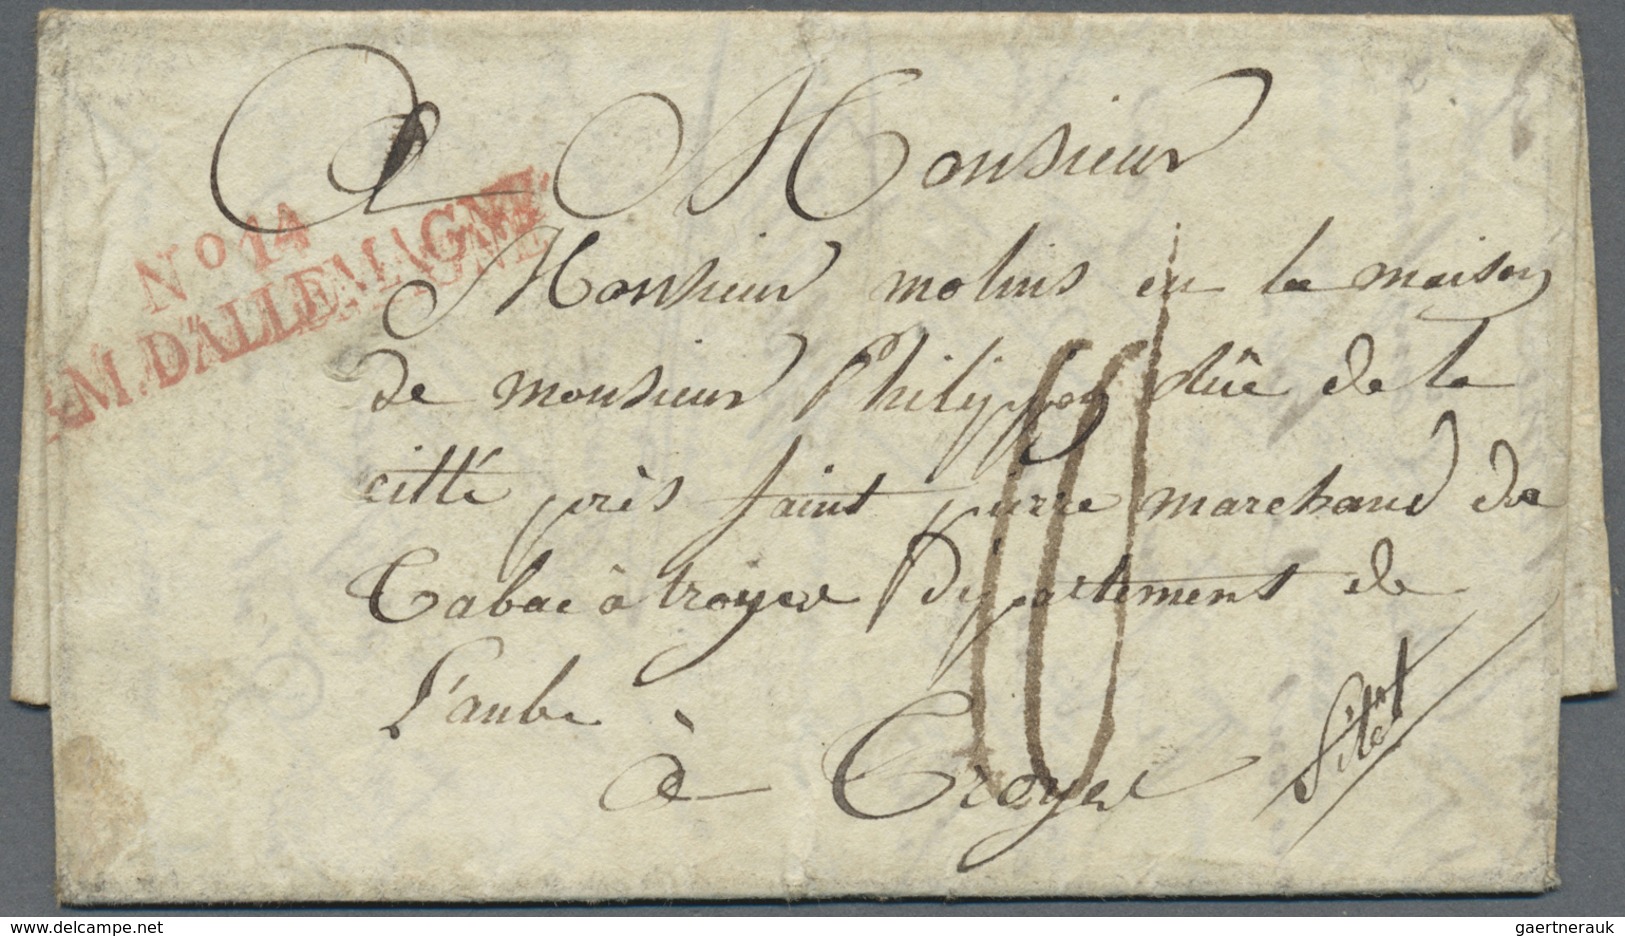 A Monsieur
No 14
RM. D'ALLEMAGNE.
Monsieur molins en la maison
de monsieur Philippes rüe de la
citté près saint pierre marchand de
Tabac à troyes Département de
L'aube
à Troyes
10
gaertnerauk